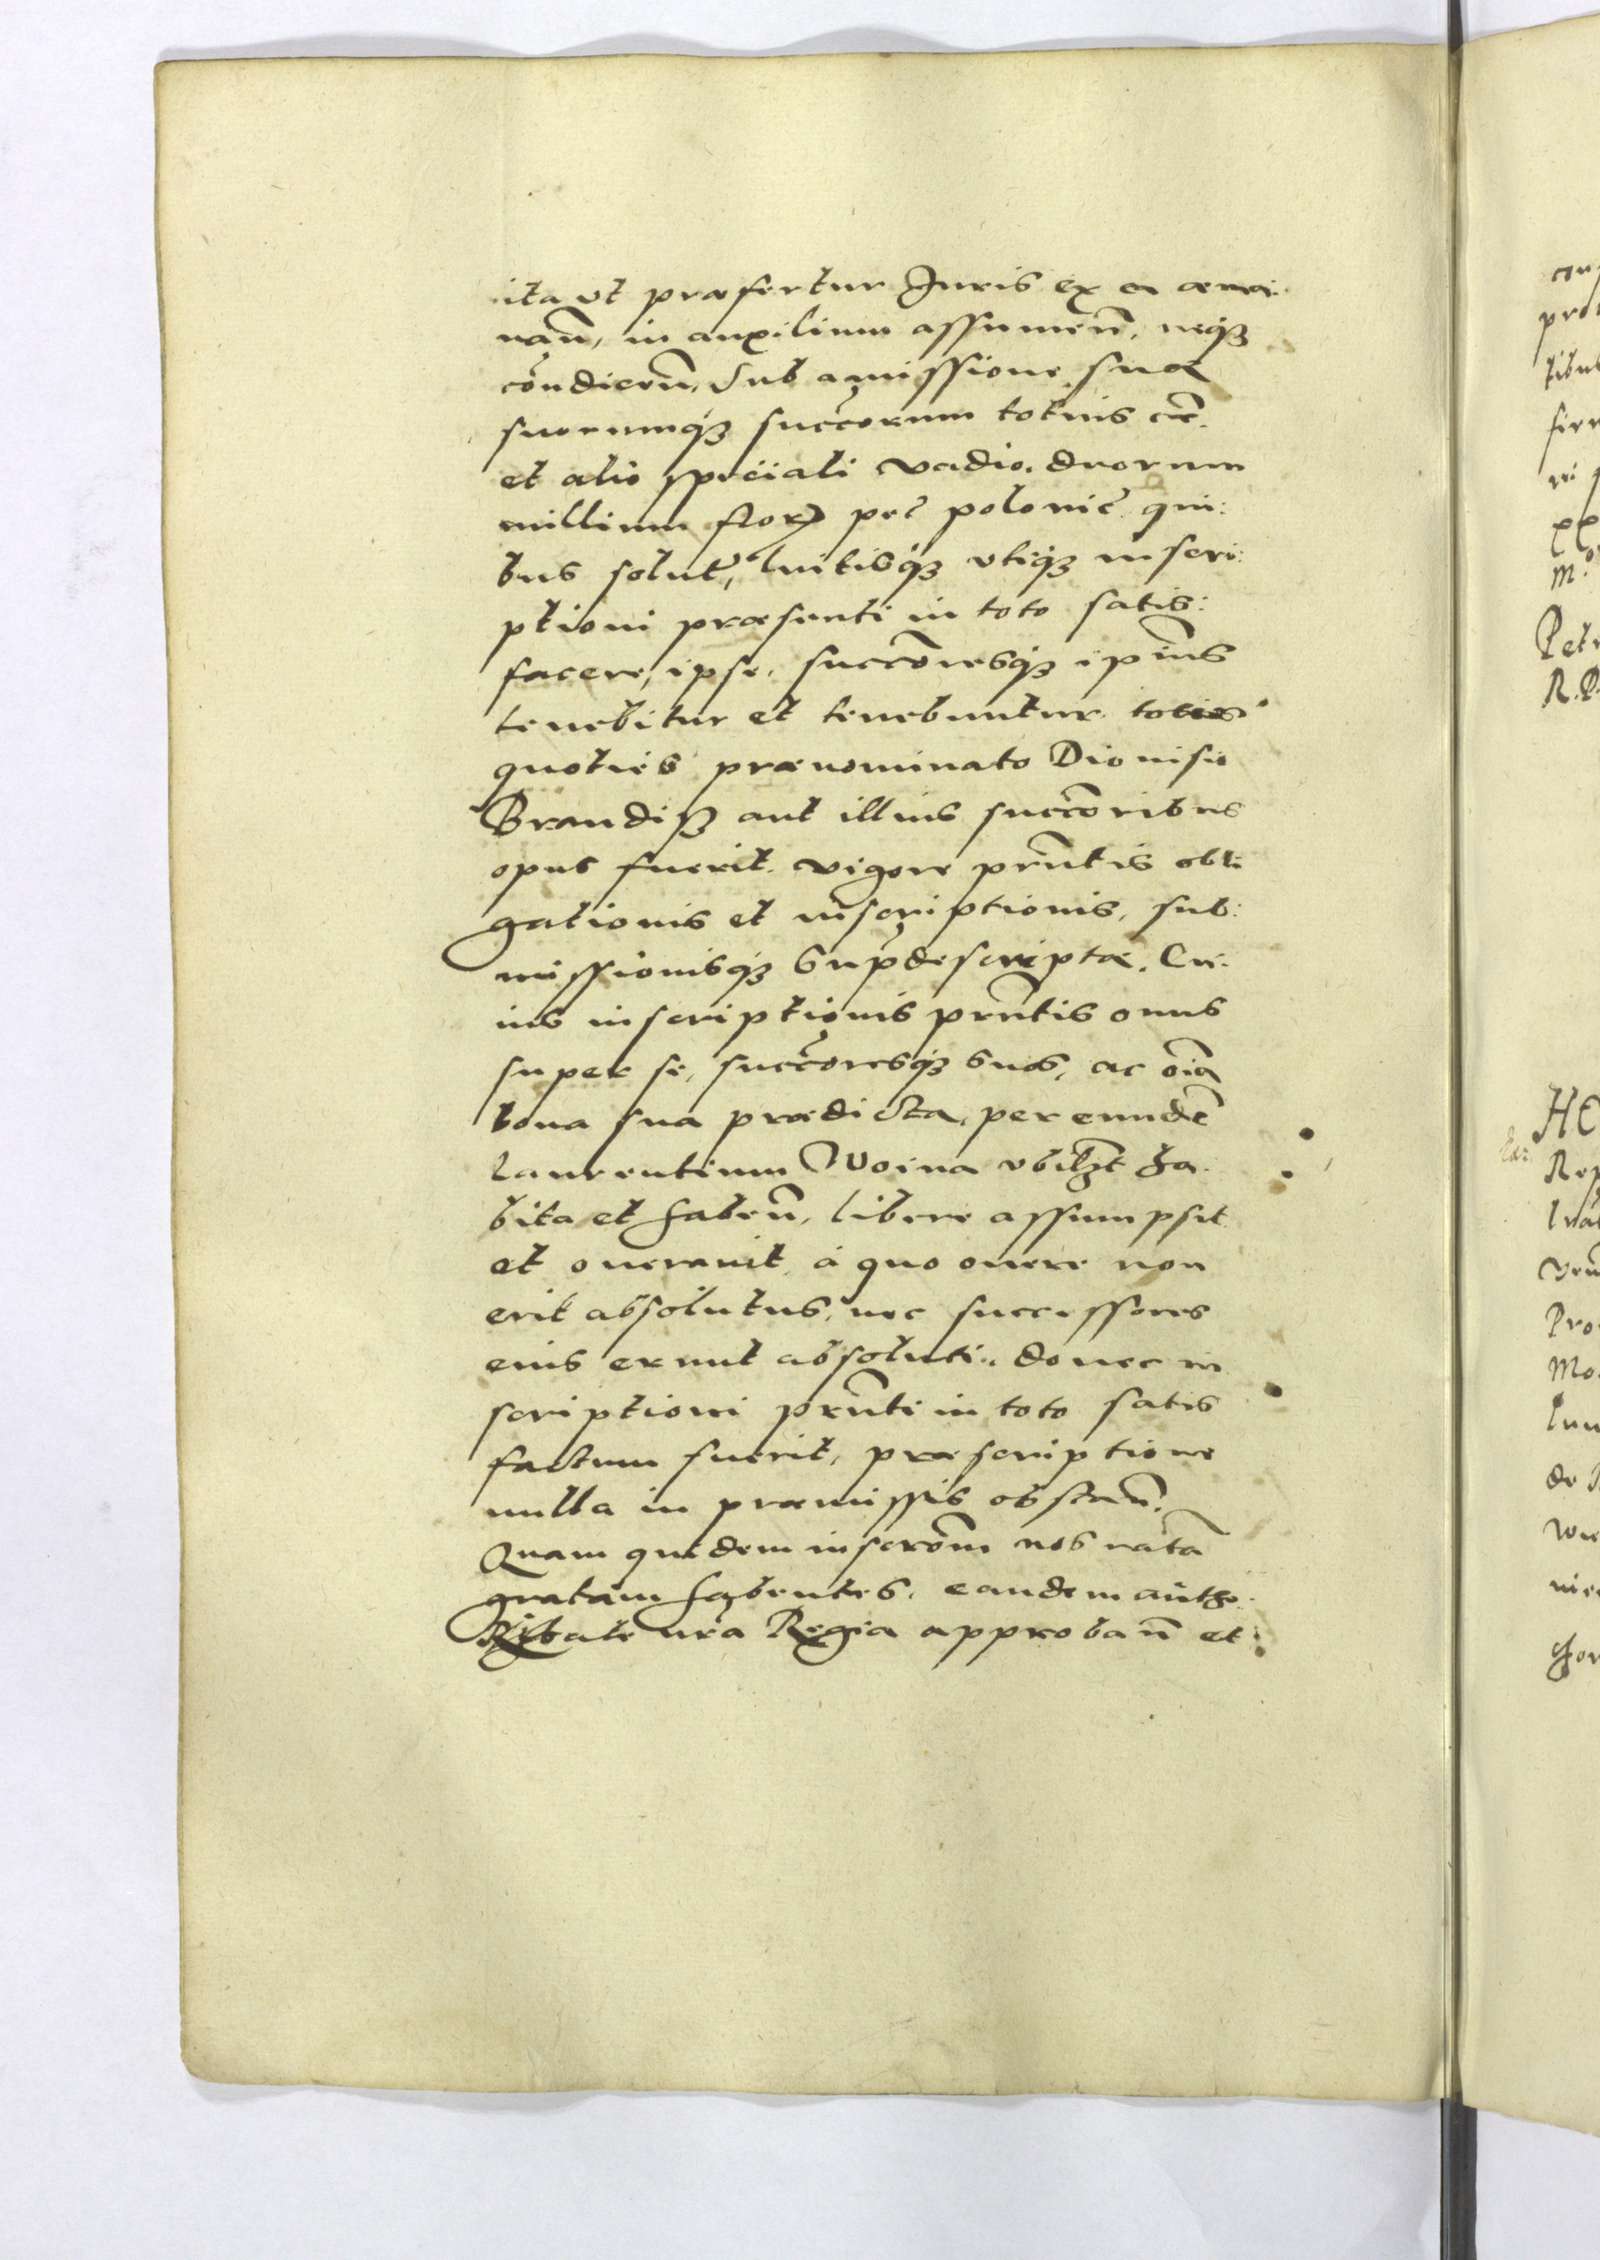 ita vt præfertur Juris ex ea æma:
nañ, in auxilium assumeñ, neqꝫ
condiceñ, Sub amissione suæ
suorumqꝫ succõrum totius cãe
et alio speciali vadio duorum
millium florꝝ pec̃ polonic̃ qui:
bus solut̃, luitisqꝫ vtiqꝫ inscri:
ptioni præsenti in toto satis:
facere, ipse, succõresqꝫ ipsius
tenebitur et tenebuntur toties
quoties prænominato Dionisio
Brandisz aut illius succõribus
opus fuerit vigore prñtis obli
gationis et inscriptionis, sub:
missionisqꝫ supradescriptæ. Cu:
ius inscriptionis prñtis onus
super se, succõresqꝫ suos, ac oĩa
bona sua prædicta, per eundẽ
Laurentium Woina vbilꝫt ha:
bita et habeñ, libere assumpsit
et onerauit à quo onere non
erit absolutus, nec successores
eius erunt absoluti, donec in
scriptioni prñti in toto satis
factum fuerit, præscriptione
nulla in præmissis obstañ.
Quam quidem inscrõem nos ratã
gratam habentes, eandem autho:
Ritate nr̃a Regia approbañ et
con
pro
tibus
fir
ri
xx
M.
Petr
R. P.
HE
Rep
Pro
Mo
de
Wie
nie